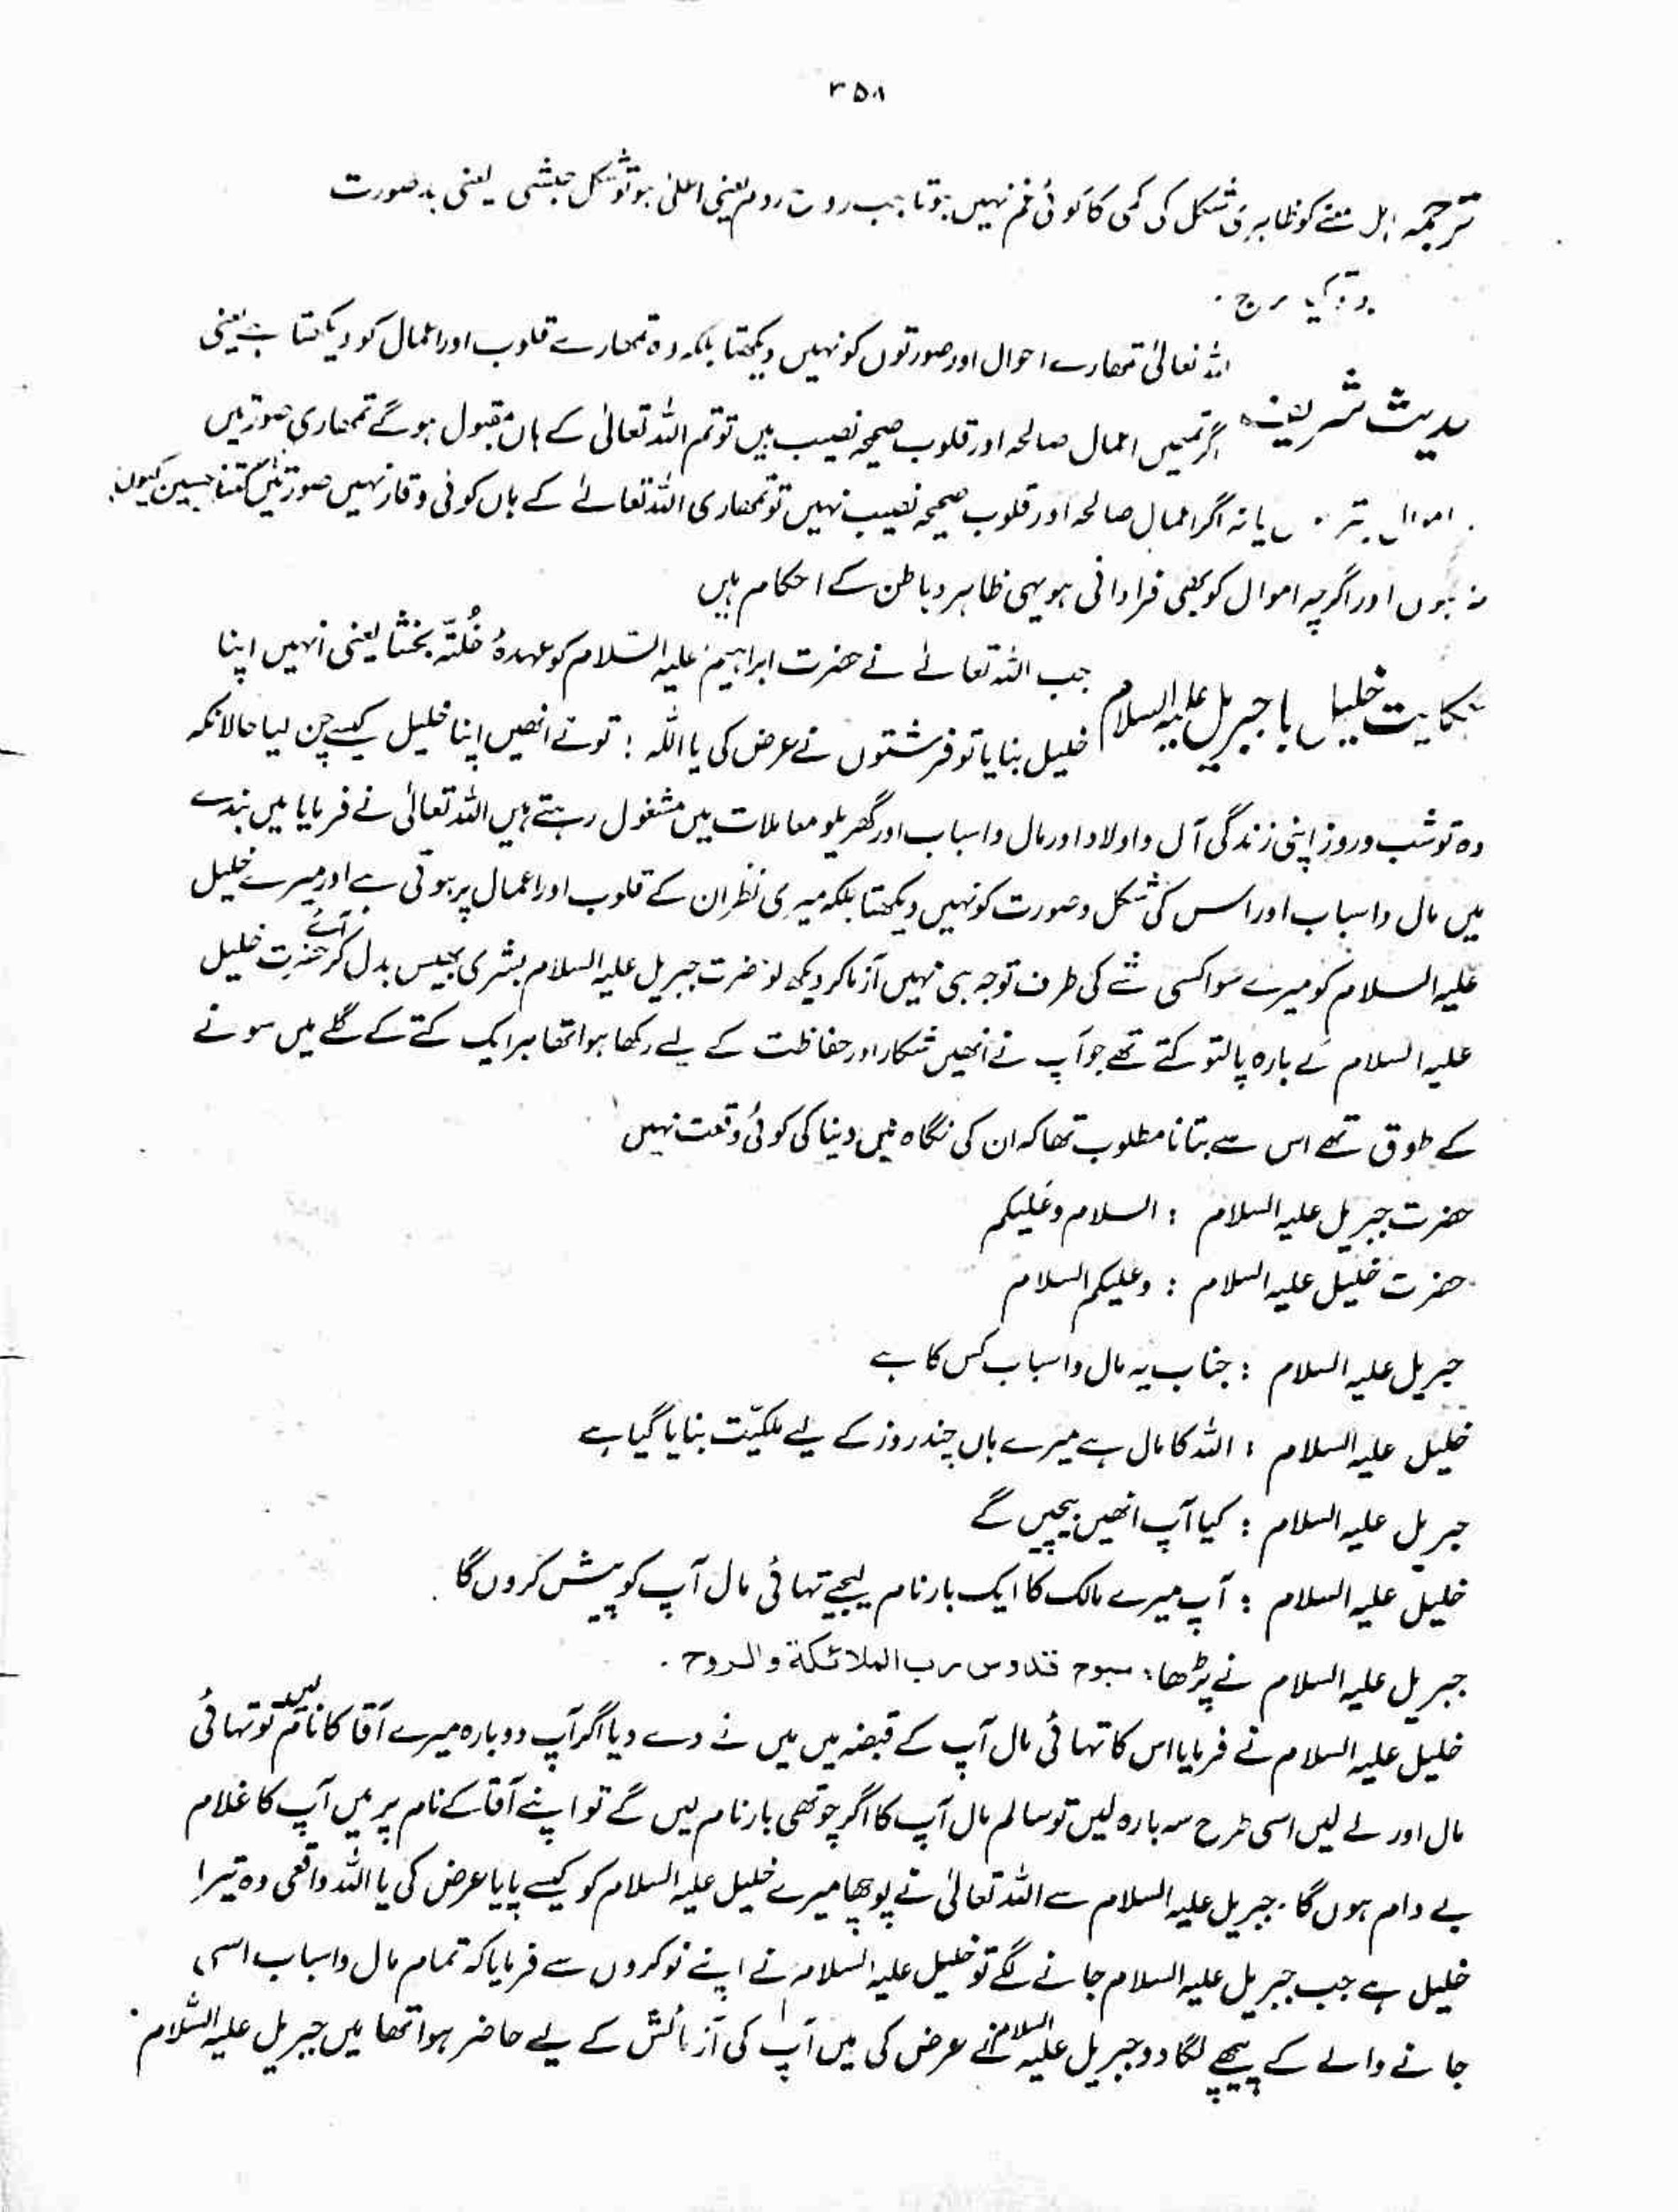 ۳۵۸
ترجمہ اہل معنے کو ظاہری شکل کی کمی کا کوئی غم نہیں ہوتا جب روح روم یعنی اعلیٰ ہو تو شکل حبشی یعنی بدصورت
ہو تو کیا حرج .
حدیث شریف اللہ تعالیٰ تمھارے احوال اور صورتوں کو نہیں دیکھتا بلکہ وہ تمھارے قلوب اور اعمال کو دیکھتا ہے یعنی
اگر تمھیں اعمال صالحہ اور قلوب صحیحہ نصیب ہیں تو تم اللہ تعالیٰ کے ہاں مقبول ہو گے تمھاری صورتیں
اموال یا نہ اگر اعمال صالحہ اور قلوب صحیحہ نصیب نہیں تو تمھاری اللہ تعالےٰ کے ہاں کوئی وقار نہیں صورتیں کتنا حسین کیوں
نہ ہوں اور اگرچہ اموال کو بھی فراوانی ہو یہی ظاہر و باطن کے احکام ہیں
حکایت خلیل با جبریل علیہ السلام جب اللہ تعالےٰ نے حضرت ابراہیم علیہ السّلام کو عہدۂ خُلّتہ بخشا یعنی انہیں اپنا
خلیل بنایا تو فرشتوں نے عرض کی یا اللہ ! تونے انھیں اپنا خلیل کیسے چن لیا حالانکہ
وہ تو شب و روز اپنی زندگی آل و اولاد اور مال و اسباب اور گھریلو معاملات میں مشغول رہتے ہیں اللہ تعالیٰ نے فرمایا میں بندے
میں مال و اسباب اور اسس کی شکل و صورت کو نہیں دیکھتا بلکہ میری نظر ان کے قلوب اور اعمال پر ہوتی ہے اور میرے خلیل
علیہ السلام کو میرے سوا کسی شے کی طرف توجہ ہی نہیں آزما کر دیکھ لو حضرت جبریل علیہ السلام بشری بھیس بدل کر آئے حضرت خلیل
علیہ السلام کے بارہ پالتو کتے تھے جو آپ نے انھیں شکار اور حفاظت کے لیے رکھا ہوا تھا ہر ایک کتے کے گلے میں سونے
کے طوق تھے اس سے بتانا مطلوب تھا کہ ان کی نگاہ میں دنیا کی کوئی وقعت نہیں
حضرت جبریل علیہ السلام : السلام و علیکم
حضرت خلیل علیہ السلام : وعلیکم السلام
جبریل علیہ السلام : جناب یہ مال و اسباب کس کا ہے
خلیل علیہ السلام : اللہ کا مال ہے میرے ہاں چند روز کے لیے ملکیّت بنایا گیا ہے
جبریل علیہ السلام : کیا آپ انھیں بیچیں گے
خلیل علیہ السلام : آپ میرے مالک کا ایک بار نام لیجیے تہائی مال آپ کو پیش کروں گا .
جبریل علیہ السلام نے پڑھا: سبوح قدوس رب الملائكة والروح .
خلیل علیہ السلام نے فرمایا اس کا تہائی مال آپ کے قبضہ میں میں نے دے دیا اگر آپ دوبارہ میرے آقا کا نام لیں تو تہائی
مال اور لے لیں اسی طرح سہ بارہ لیں تو سالم مال آپ کا اگر چوتھی بار نام لیں گے تو اپنے آقا کے نام پر میں آپ کا غلام
بے دام ہوں گا. جبریل علیہ السلام سے اللہ تعالیٰ نے پوچھا میرے خلیل علیہ السلام کو کیسے پایا عرض کی یا اللہ واقعی وہ تیرا
خلیل ہے جب جبریل علیہ السلام جانے لگے تو خلیل علیہ السلام نے اپنے نوکروں سے فرمایا کہ تمام مال و اسباب اسی
جانے والے کے پیچھے لگا دو جبریل علیہ السلام نے عرض کی میں آپ کی آزمائش کے لیے حاضر ہوا تھا میں جبریل علیہ السّلام